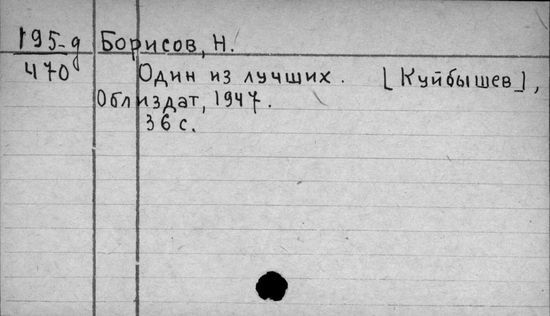 195-д Борисов, Н.
470 Один из лучших. [Куйбышев],
Облиздат, 1947.
36 с.